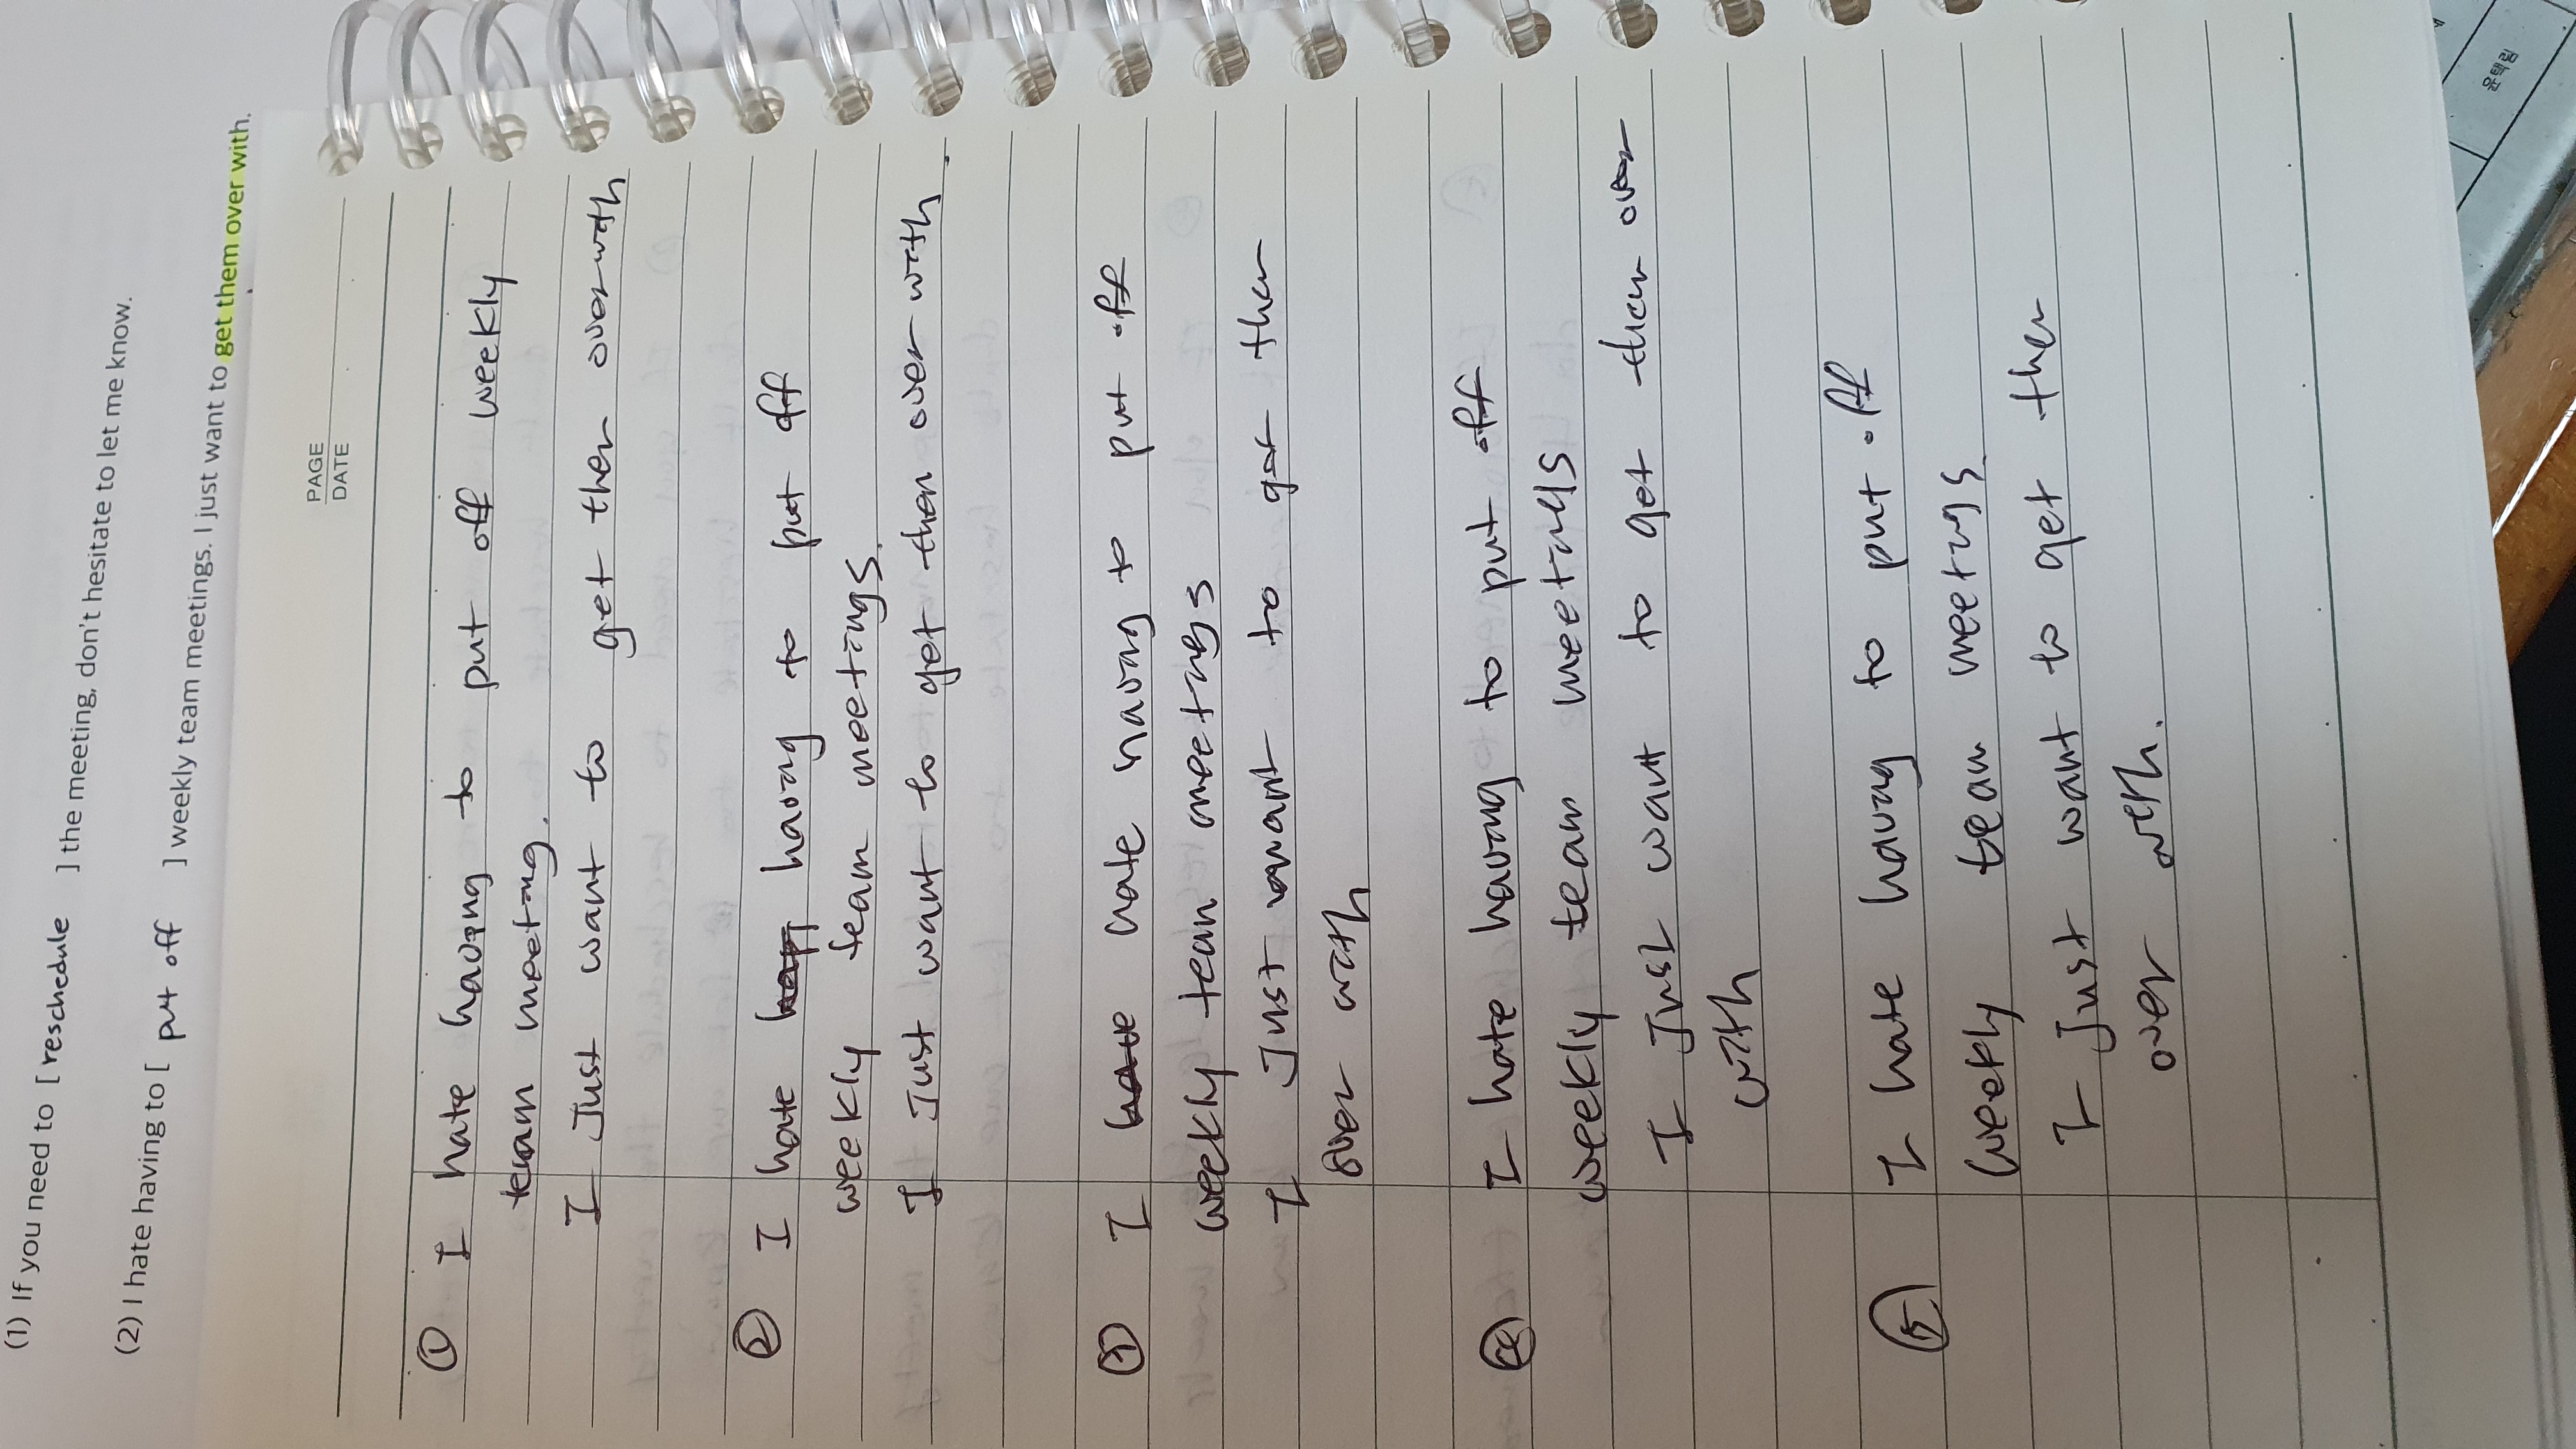 (1) If you need to [ reschedule ] the meeting, don't hesitate to let me know.
(2) I hate having to [ put off ] weekly team meetings. I just want to get them over with.
PAGE
DATE
① I hate having to put off weekly
team meeting.
I Just want to get them over with
② I hate having to put off
weekly team meetings.
I Just want to get them over with.
③ I hate having to put off
weekly team meetings
I Just want to get them
over with
④ I hate having to put off
weekly team meetings
I Just want to get them over
with
⑤ I hate having to put off
weekly team meetings
I Just want to get them
over with.
윤택림